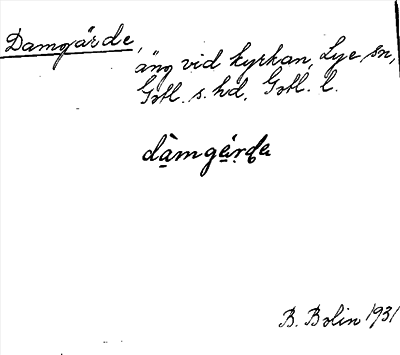 Damgärde,
äng vid kyrkan, Lye sn,
Gotl. s. hd, Gotl. l.
dàmgä́rda
B. Bolin 1931